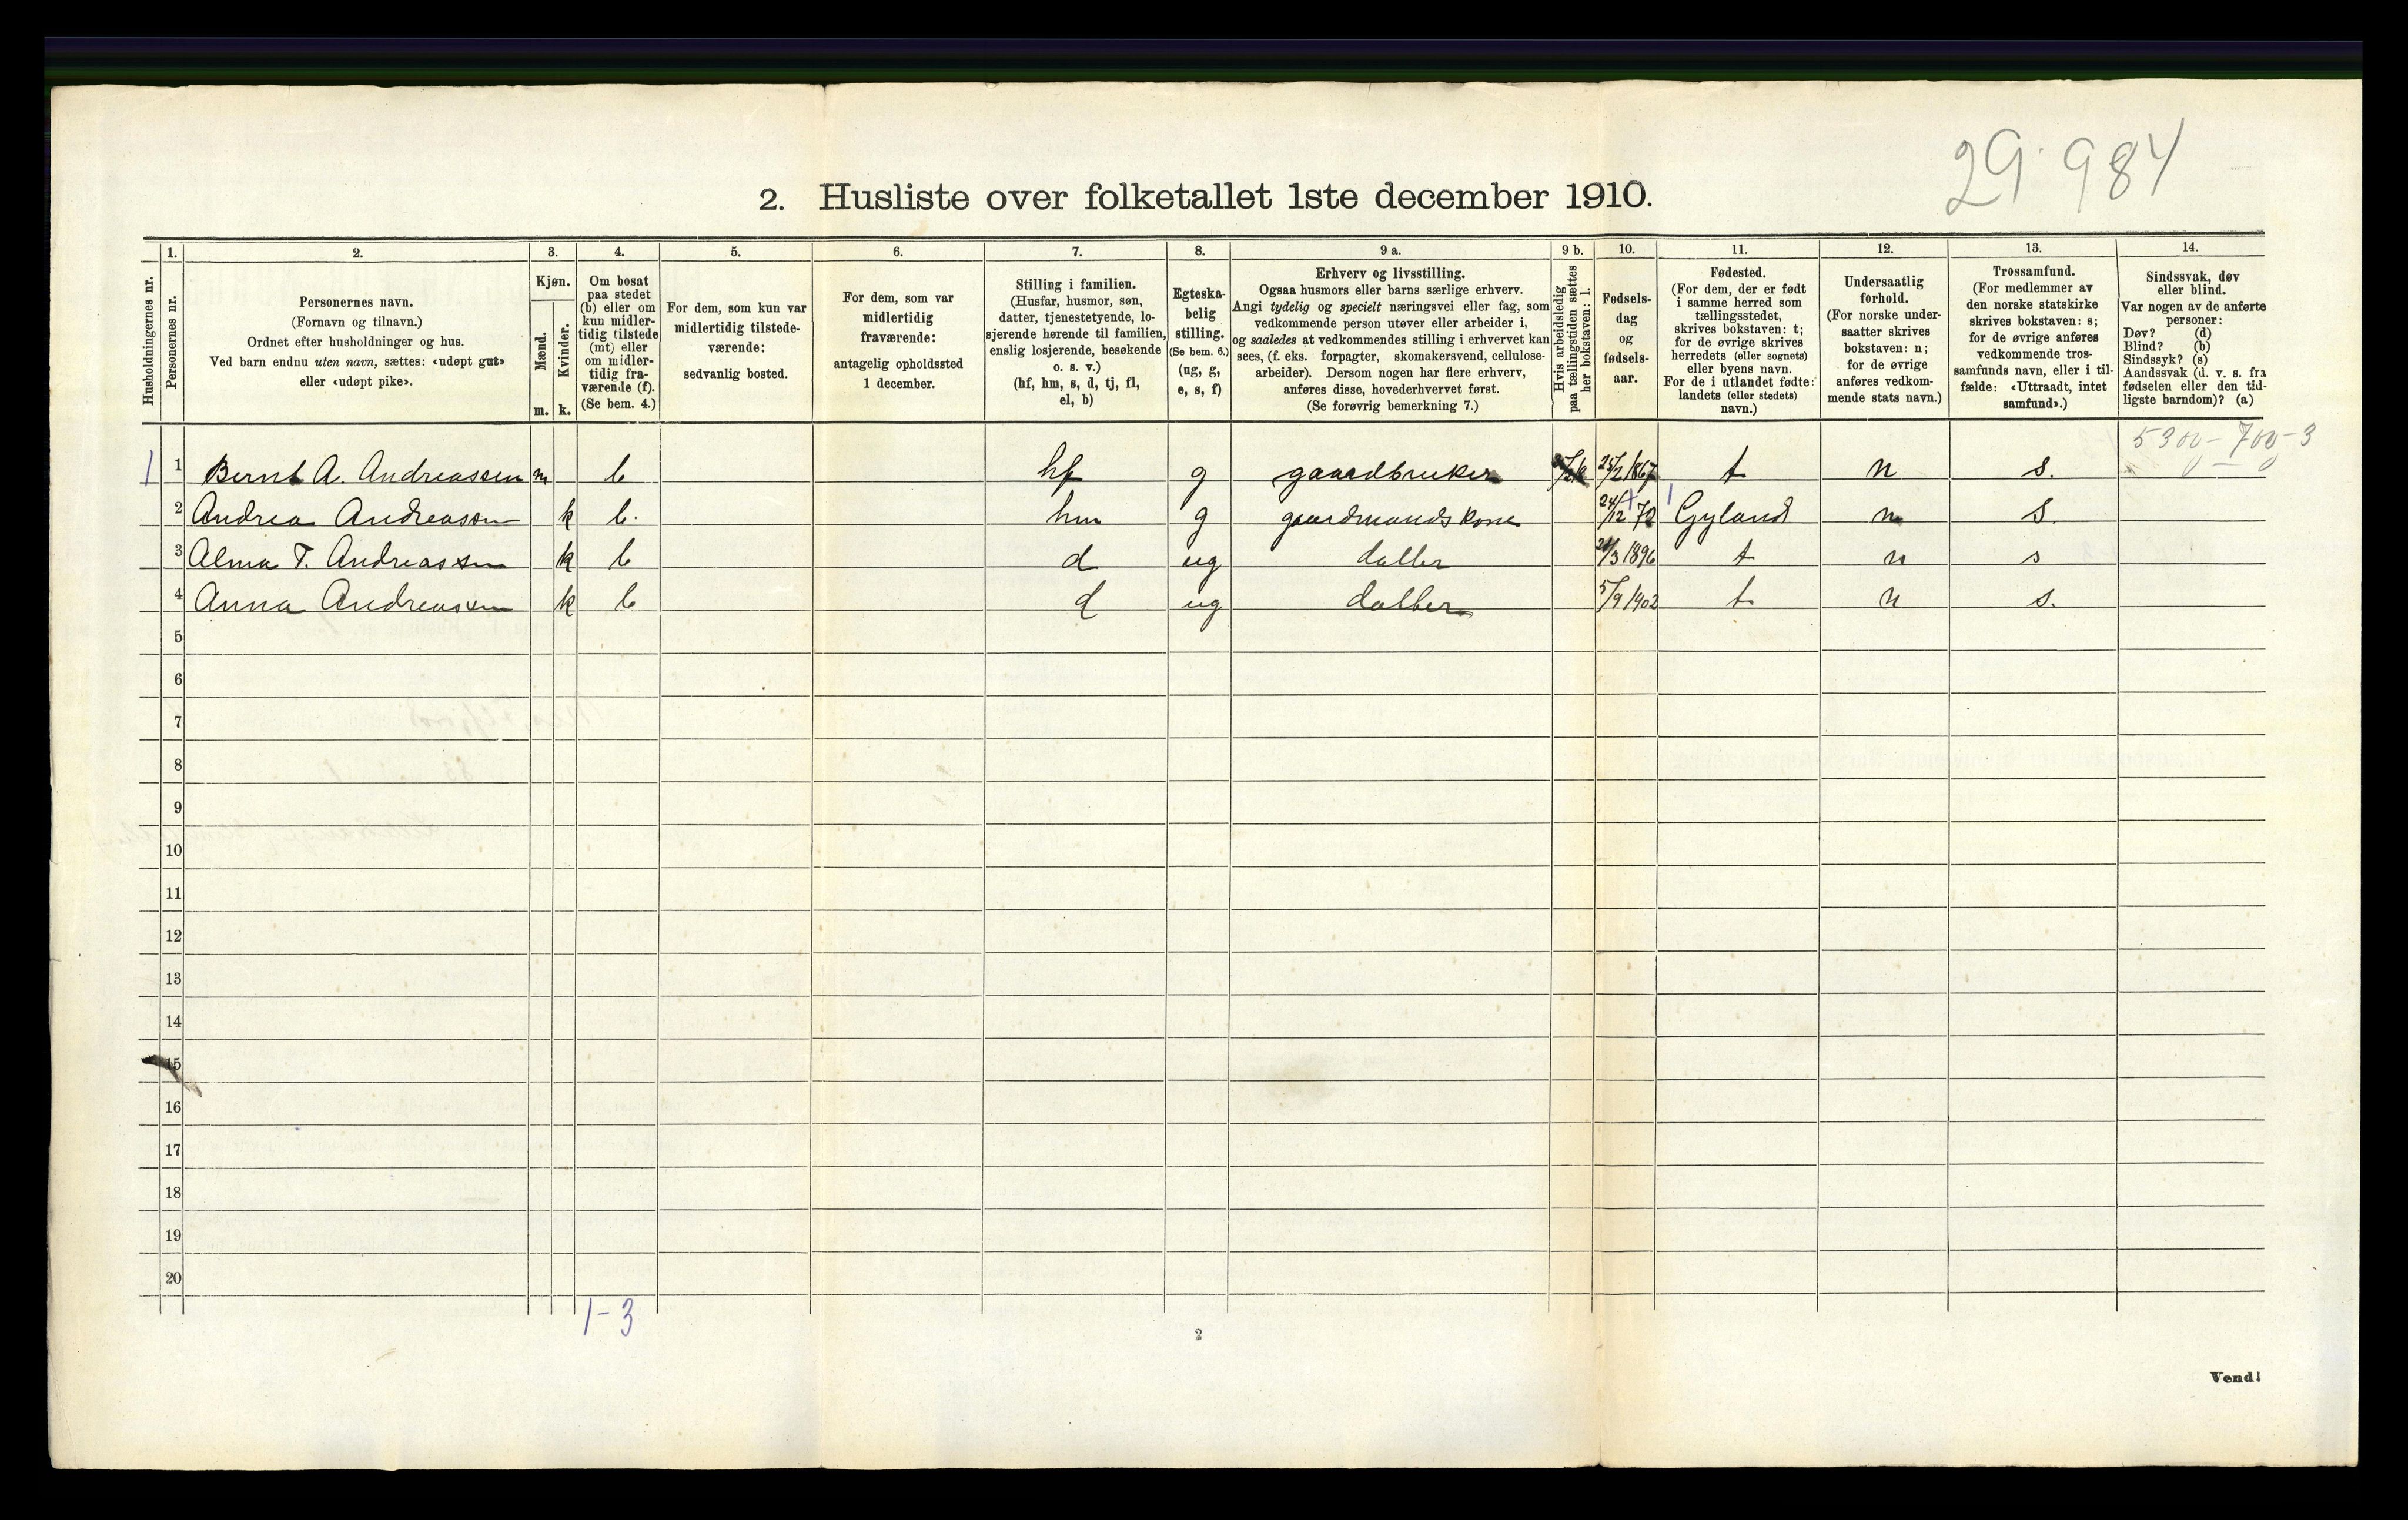 29·984
2. Husliste over folketallet 1ste december 1910.
Husholdningernes nr.
1. Personernes nr.
2. Personernes navn.
(Fornavn og tilnavn.)
Ordnet efter husholdninger og hus.
Ved barn endnu uten navn, sættes: «udøpt gut»
eller «udøpt pike».
3. Kjøn.
Mænd. m.
Kvinder. k.
4. Om bosat
paa stedet
(b) eller om
kun midler-
tidig tilstede
(mt) eller
om midler-
tidig fra-
værende (f).
(Se bem. 4.)
5. For dem, som kun var
midlertidig tilstede-
værende:
sedvanlig bosted.
6. For dem, som var
midlertidig
fraværende:
antagelig opholdssted
1 december.
7. Stilling i familien.
(Husfar, husmor, søn,
datter, tjenestetyende, lo-
sjerende hørende til familien,
enslig losjerende, besøkende
o. s. v.)
(hf, hm, s, d, tj, fl,
el, b)
8. Egteska-
belig
stilling.
(Se bem. 6.)
(ug, g,
e, s, f)
9 a. Erhverv og livsstilling.
Ogsaa husmors eller barns særlige erhverv.
Angi tydelig og specielt næringsvei eller fag, som
vedkommende person utøver eller arbeider i,
og saaledes at vedkommendes stilling i erhvervet kan
sees, (f. eks. forpagter, skomakersvend, cellulose-
arbeider). Dersom nogen har flere erhverv,
anføres disse, hovederhvervet først.
(Se forøvrig bemerkning 7.)
9 b. Hvis arbeidsledig
paa tællingstiden sættes
her bokstaven: l.
10. Fødsels-
dag
og
fødsels-
aar.
11. Fødested.
(For dem, der er født
i samme herred som
tællingsstedet,
skrives bokstaven: t;
for de øvrige skrives
herredets (eller sognets)
eller byens navn.
For de i utlandet fødte:
landets (eller stedets)
navn.)
12. Undersaatlig
forhold.
(For norske under-
saatter skrives
bokstaven: n;
for de øvrige
anføres vedkom-
mende stats navn.)
13. Trossamfund.
(For medlemmer av
den norske statskirke
skrives bokstaven: s;
for de øvrige anføres
vedkommende tros-
samfunds navn, eller i til-
fælde: «Uttraadt, intet
samfund».)
14. Sindssvak, døv
eller blind.
Var nogen av de anførte
personer:
Døv? (d)
Blind? (b)
Sindssyk? (s)
Aandssvak (d. v. s. fra
fødselen eller den tid-
ligste barndom)? (a)
5300-700-3
1 1 Bernt A. Andreassen m b hf g gaardbruker 25/2 1867 t n s.
2 Andrea Andreassen k b. hm g gaardmandskone 24/12 72 Gyland n s.
3 Alma T. Andreassen k b d ug datter /3 1896 t n s
4 Anna Andreassen k b d ug datter 5/9 1902 t n s.
5
6
7
8
9
10
11
12
13
14
15
16
17
18
19
20
1-3
2
Vend!